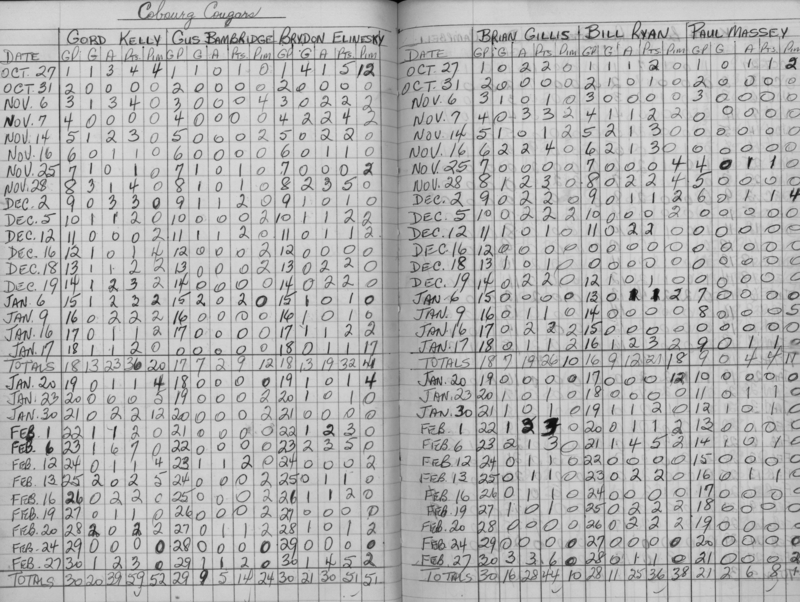 Cobourg Cougars
GORD KELLY GUS BAMBRIDGE BRYDON ELINESKY
DATE GP G A Pts Pim GP G A Pts Pim GP G A Pts Pim
OCT. 27 1 1 3 4 4 1 1 0 1 0 1 4 1 5 12
OCT. 31 2 0 0 0 0 2 0 0 0 0 2 0 0 0 0
NOV. 6 3 1 3 4 0 3 0 0 0 4 3 0 2 2 2
NOV. 7 4 0 0 0 0 4 0 0 0 0 4 2 2 4 2
NOV. 14 5 1 2 3 0 5 0 0 0 2 5 0 2 2 0
NOV. 16 6 0 1 1 0 6 0 0 0 0 6 0 1 1 0
NOV. 25 7 1 0 1 0 7 1 0 1 0 7 0 0 0 2
NOV. 28 8 3 1 4 0 8 1 0 1 0 8 2 3 5 0
DEC. 2 9 0 3 3 0 9 1 1 2 0 9 1 0 1 0
DEC. 5 10 1 1 2 0 10 0 0 0 2 10 1 1 2 2
DEC. 12 11 0 0 0 2 11 1 1 2 0 11 0 1 1 2
DEC. 16 12 1 0 1 4 12 0 0 0 2 12 0 0 0 0
DEC. 18 13 1 1 2 2 13 0 0 0 2 13 0 2 2 0
DEC. 19 14 1 2 3 2 14 0 0 0 0 14 0 2 2 0
JAN. 6 15 1 2 3 2 15 2 0 2 0 15 1 0 1 0
JAN. 9 16 0 2 2 2 16 0 0 0 0 16 1 0 1 0
JAN. 16 17 0 1 1 2 17 0 0 0 0 17 1 1 2 2
JAN. 17 18 1 1 2 0 0 0 0 0 18 0 1 1 17
TOTALS 18 13 23 36 20 17 7 2 9 12 18 13 19 32 41
JAN. 20 19 0 1 1 4 18 0 0 0 0 19 1 0 1 4
JAN. 23 20 0 0 0 5 19 0 0 0 2 20 1 0 1 0
JAN. 30 21 0 2 2 12 20 0 0 0 2 21 0 0 0 0
FEB. 1 22 1 1 2 0 21 0 0 0 0 22 1 2 3 0
FEB. 6 23 1 6 7 0 22 0 0 0 0 23 2 3 5 0
FEB. 12 24 0 1 1 4 23 1 1 2 0 24 0 0 0 2
FEB. 13 25 2 0 2 5 24 0 0 0 2 25 0 1 1 0
FEB. 16 26 0 2 2 0 25 0 0 0 2 26 1 1 2 0
FEB. 19 27 0 1 1 0 26 0 0 0 2 27 0 0 0 0
FEB. 20 28 2 0 2 2 27 0 1 1 2 28 1 0 1 2
FEB. 24 29 0 0 0 0 28 0 0 0 0 29 0 0 0 0
FEB. 27 30 1 2 3 0 29 1 1 2 0 30 1 4 5 2
TOTALS 30 20 39 59 52 29 9 5 14 24 30 21 30 51 51
BRIAN GILLIS BILL RYAN PAUL MASSEY
DATE GP G A Pts Pim GP G A Pts Pim GP G A Pts Pim
OCT. 27 1 0 2 2 0 1 1 1 2 0 1 0 1 1 2
OCT. 31 2 0 0 0 0 2 1 0 1 0 2 0 0 0 0
NOV. 6 3 1 0 1 0 3 0 0 0 0 3 0 0 0 0
NOV. 7 4 0 3 3 2 4 1 1 2 2 0 0 0 0 0
NOV. 14 5 1 0 1 2 5 2 1 3 0 0 0 0 0
NOV. 16 6 2 2 4 0 6 2 1 3 0 0 0 0 0 0
NOV. 25 7 0 0 0 0 7 0 0 0 4 4 0 1 1 0
NOV. 28 8 1 2 3 0 8 0 2 2 4 5 0 0 0 0
DEC. 2 9 0 2 2 0 9 0 1 1 2 6 0 1 1 4
DEC. 5 10 0 2 2 2 10 0 0 0 2 0 0 0 0
DEC. 12 11 1 0 1 0 11 0 2 2 0 0 0 0 0
DEC. 16 12 0 0 0 0 0 0 0 0 0 0 0 0 0
DEC. 18 13 1 0 1 0 0 0 0 0 0 0 0 0 0
DEC. 19 14 0 2 2 0 12 1 0 1 0 0 0 0 0
JAN. 6 15 0 0 0 0 13 0 1 1 2 7 0 0 0 0
JAN. 9 16 0 1 1 0 14 0 0 0 0 8 0 0 0 5
JAN. 16 17 0 2 2 2 15 0 0 0 0 0 0 0 0
JAN. 17 18 0 1 1 2 16 1 2 3 2 9 0 1 1 0
TOTALS 18 7 19 26 10 16 9 12 21 18 9 0 4 4 11
JAN. 20 19 0 0 0 0 17 0 0 0 12 10 0 0 0 0
JAN. 23 20 1 0 1 0 18 0 0 0 0 11 0 1 1 0
JAN. 30 21 1 0 1 0 19 1 1 2 0 12 1 0 1 0
FEB. 1 22 1 2 3 0 20 0 1 1 2 13 0 0 0 0
FEB. 6 23 2 1 3 0 21 1 4 5 2 14 1 0 1 0
FEB. 12 24 0 1 1 0 22 0 0 0 0 15 0 0 0 0
FEB. 13 25 0 1 1 0 23 0 2 2 0 16 0 1 1 0
FEB. 16 26 0 1 1 0 24 0 0 0 0 17 0 0 0 0
FEB. 19 27 1 0 1 0 25 0 2 2 2 18 0 0 0 0
FEB. 20 28 0 0 0 0 26 0 2 2 2 19 0 0 0 0
FEB. 24 29 0 0 0 0 27 0 0 0 0 20 0 0 0 0
FEB. 27 30 3 3 6 0 28 0 1 1 0 21 0 0 0 2
TOTALS 30 16 28 44 10 28 11 25 36 38 21 2 6 8